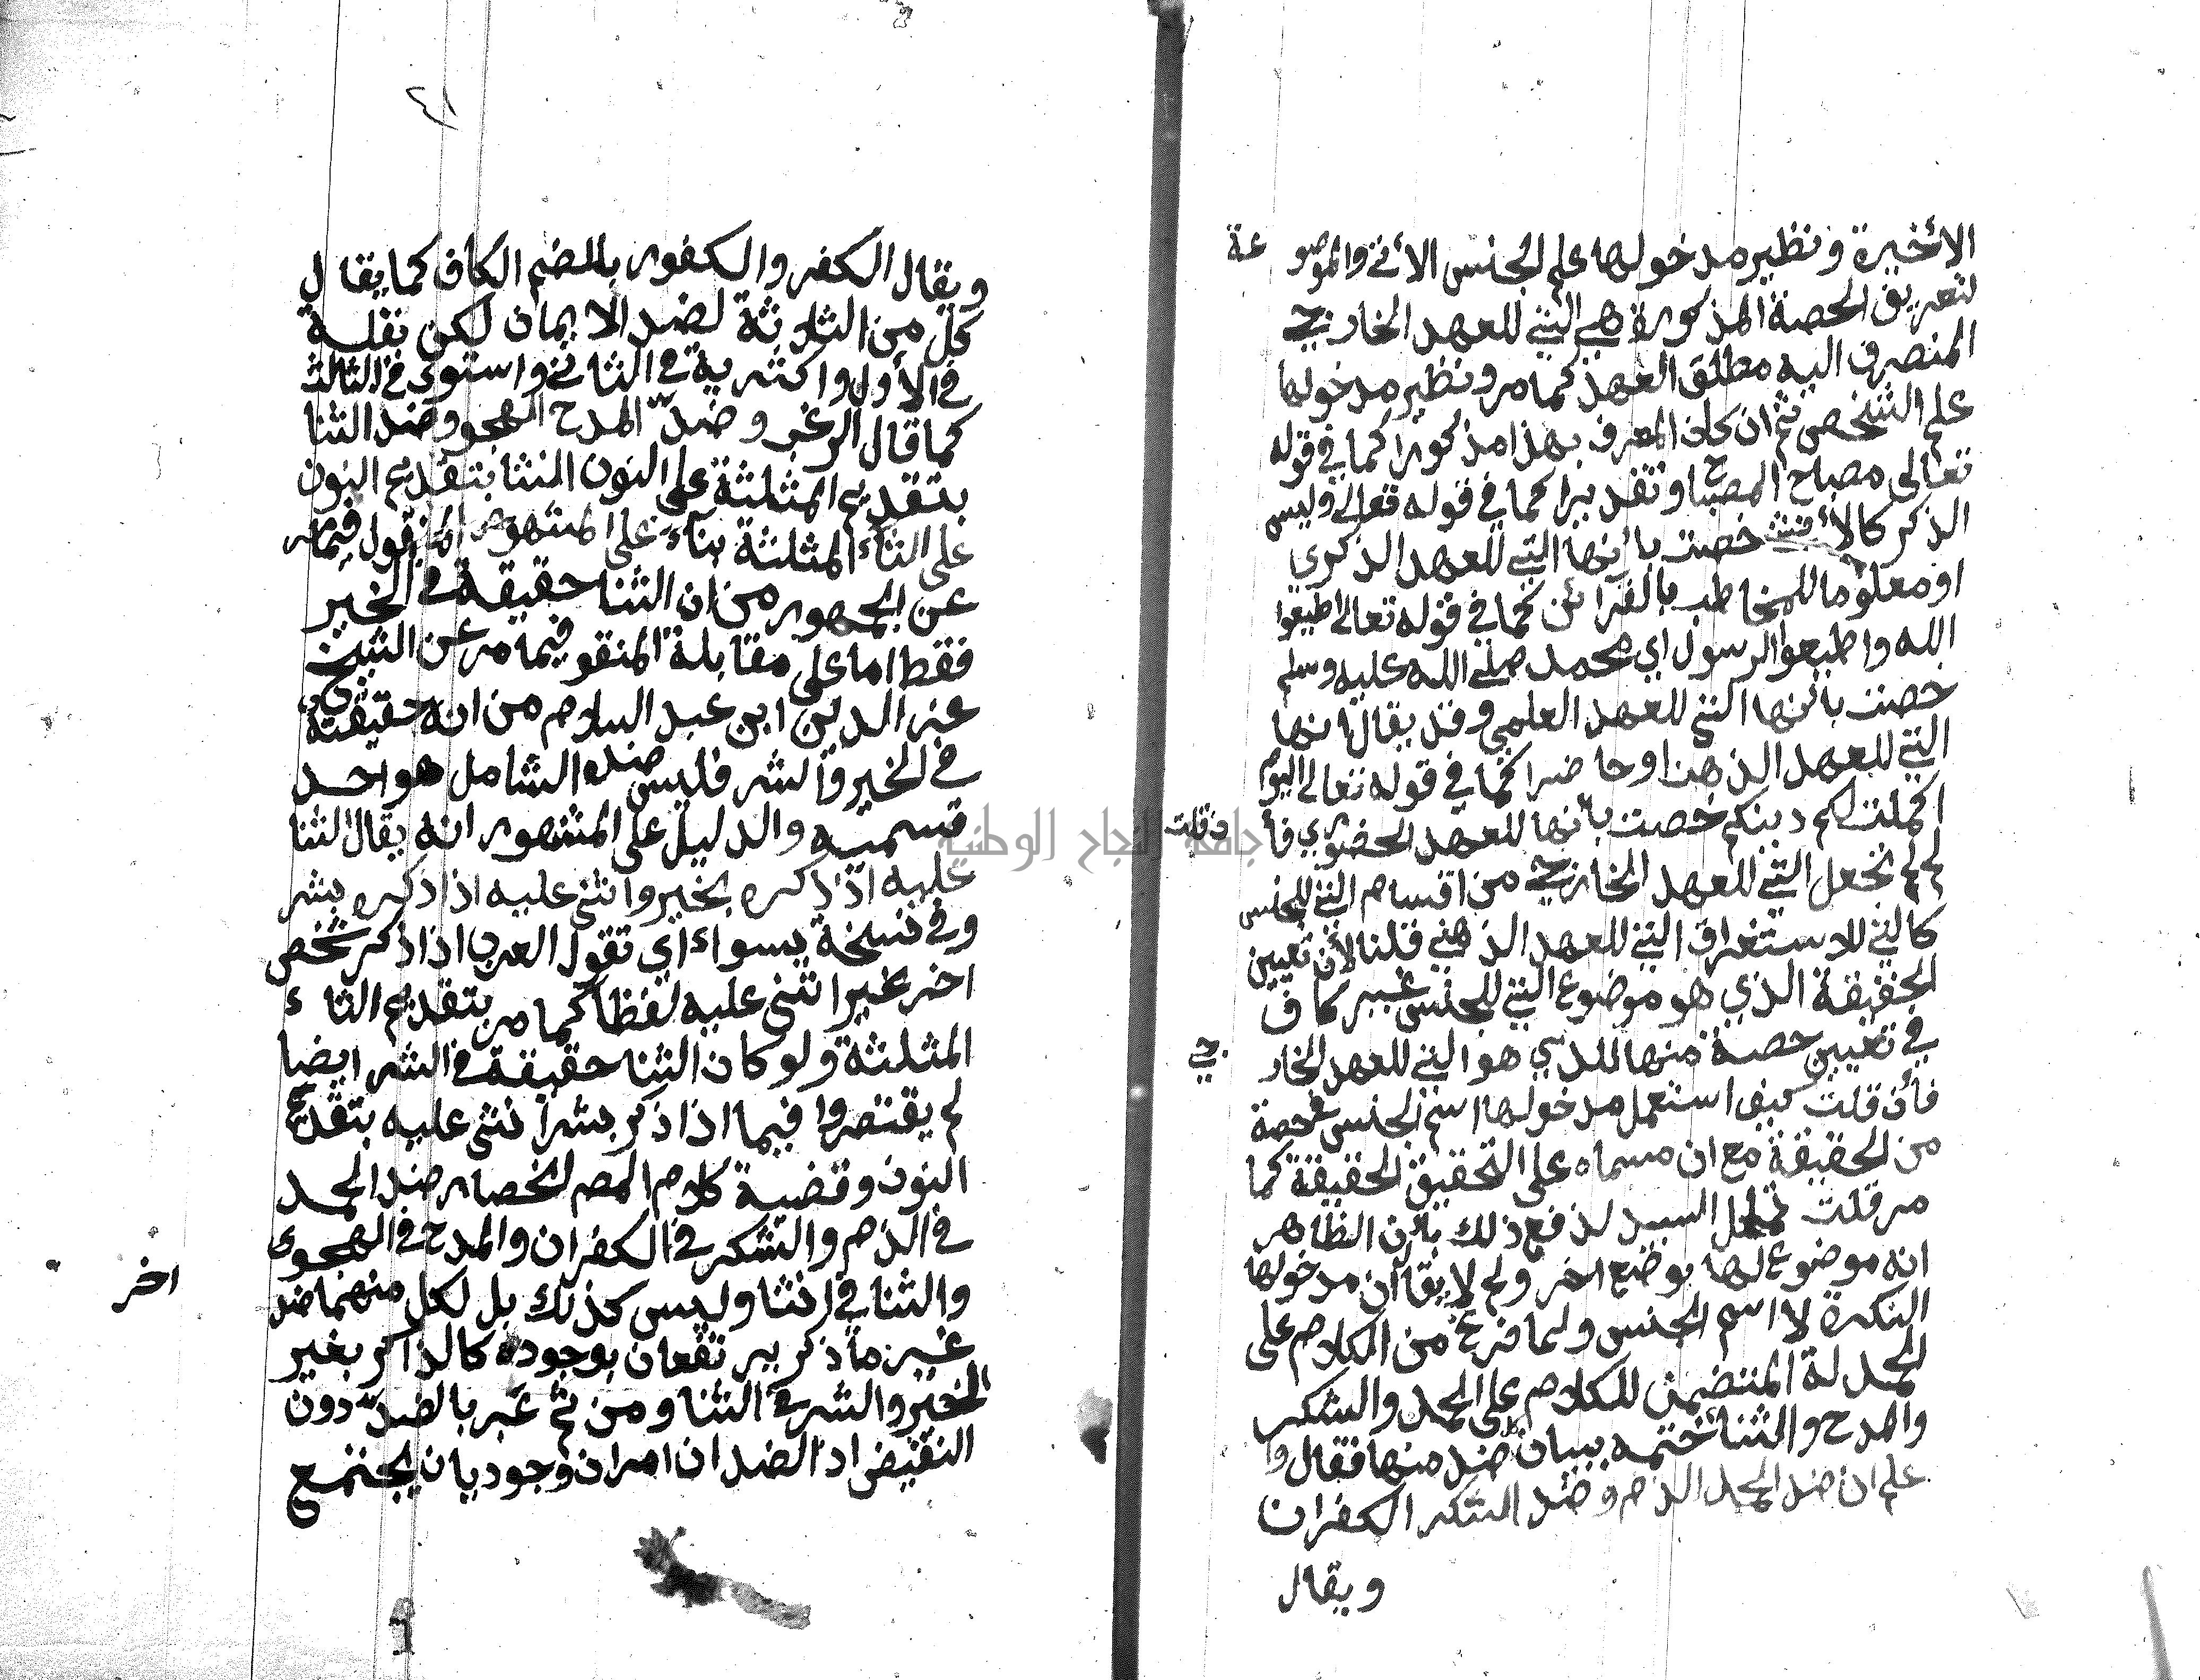 الأخيرة ونظير مدخولها علم الجنس الأتي والموضوعة
لتعريف الحصة المذكورة هي التي للعهد الخارجي
المنصرف اليه مطلق العهد كما مر ونظير مدخولها
علم الشخص ثم ان كان المعرف بهذا مذكورا كما في قوله
تعالى مصباح المصباح او تقديرا كما في قوله تعالى وليس
الذكر كالأنثى خصت بأنها التي للعهد الذكري
او معلوما للمخاطب بالقرائن كما في قوله تعالى اطيعوا
الله واطيعوا الرسول اي محمد صلى الله عليه وسلم
خصت بأنها التي للعهد العلمي وقد يقال انها
التي للعهد الذهن او حاضرا كما في قوله تعالى اليوم
اكملت لكم دينكم خصت بأنها للعهد الحضوري فأن قلت
لم لم تجعل التي للعهد الخارجي من اقسام التي للجنس
كالتي للاستغراق التي للعهد الذهني قلنا لأن تعيين
الحقيقة الذي هو موضوع التي للجنس غير كاف
في تعيين حصة منها للذي هو التي للعهد الخارجي
فأن قلت كيف استعمل مدخولها اسم الجنس في حصة
من الحقيقة مع ان مسماه على التحقيق الحقيقة كما
مر قلت السيد لدفع ذلك بأن الظاهر
انه موضوع لها بوضع اخر ولم لا يقال أن مدخولها
النكرة لا اسم الجنس ولما فرغ من الكلام على
الحمدلة المتضمن للكلام على الحمد والشكر
والمدح والثنا ختمه ببيان ضد كل منها فقال وا
علم ان ضد الحمد الذم وضد الشكر الكفران
ويقال
٤١
ويقال الكفر والكفور بالضم الكاف كما يقال
كل من الثلاثة لضد الايمان لكن نقلة
في الأول واكثرية في الثاني واستوى في الثالث
كما قال الرغب وضد المدح الهجو وضد الثنا
بتقديم المثلثة على النون النثا بتقديم النون
على الثاء المثلثة بناء على المشهور المنقول فيما مر
عن الجمهور من ان الثنا حقيقة في الخير
فقط اما على مقابلة المنقو فيما مر عن الشيخ
عز الدين ابن عبد السلام من انه حقيقة
في الخير والشر فليس ضده الشامل هو احد
قسميه والدليل على المشهور انه يقال اثنا
عليه اذا ذكره بخير واثني عليه اذا ذكره بشر
وفي نسخة بسواء اي تقول العرب اذا ذكر شخص
اخر خيرا اثنى عليه لفظا كما مر بتقديم الثاء
المثلثة ولو كان الثنا حقيقة في الشر ايضا
لم يقتصروا فيما اذا ذكر بشر أنثى عليه بتقديم
النون وقضية كلام المص انحصار ضد الحمد
في الذم والشكر في الكفران والمدح في الهجو
والثنا في النثا وليس كذلك بل لكل منهما ضد اخر
غير ما ذكر بوجوده كالذاكر بغير
الخير والشر في الثنا ومن ثم عبر بالضد دون
النقيض اذ الضدان امران وجوديان يجتمع
جامعة النجاح الوطنية